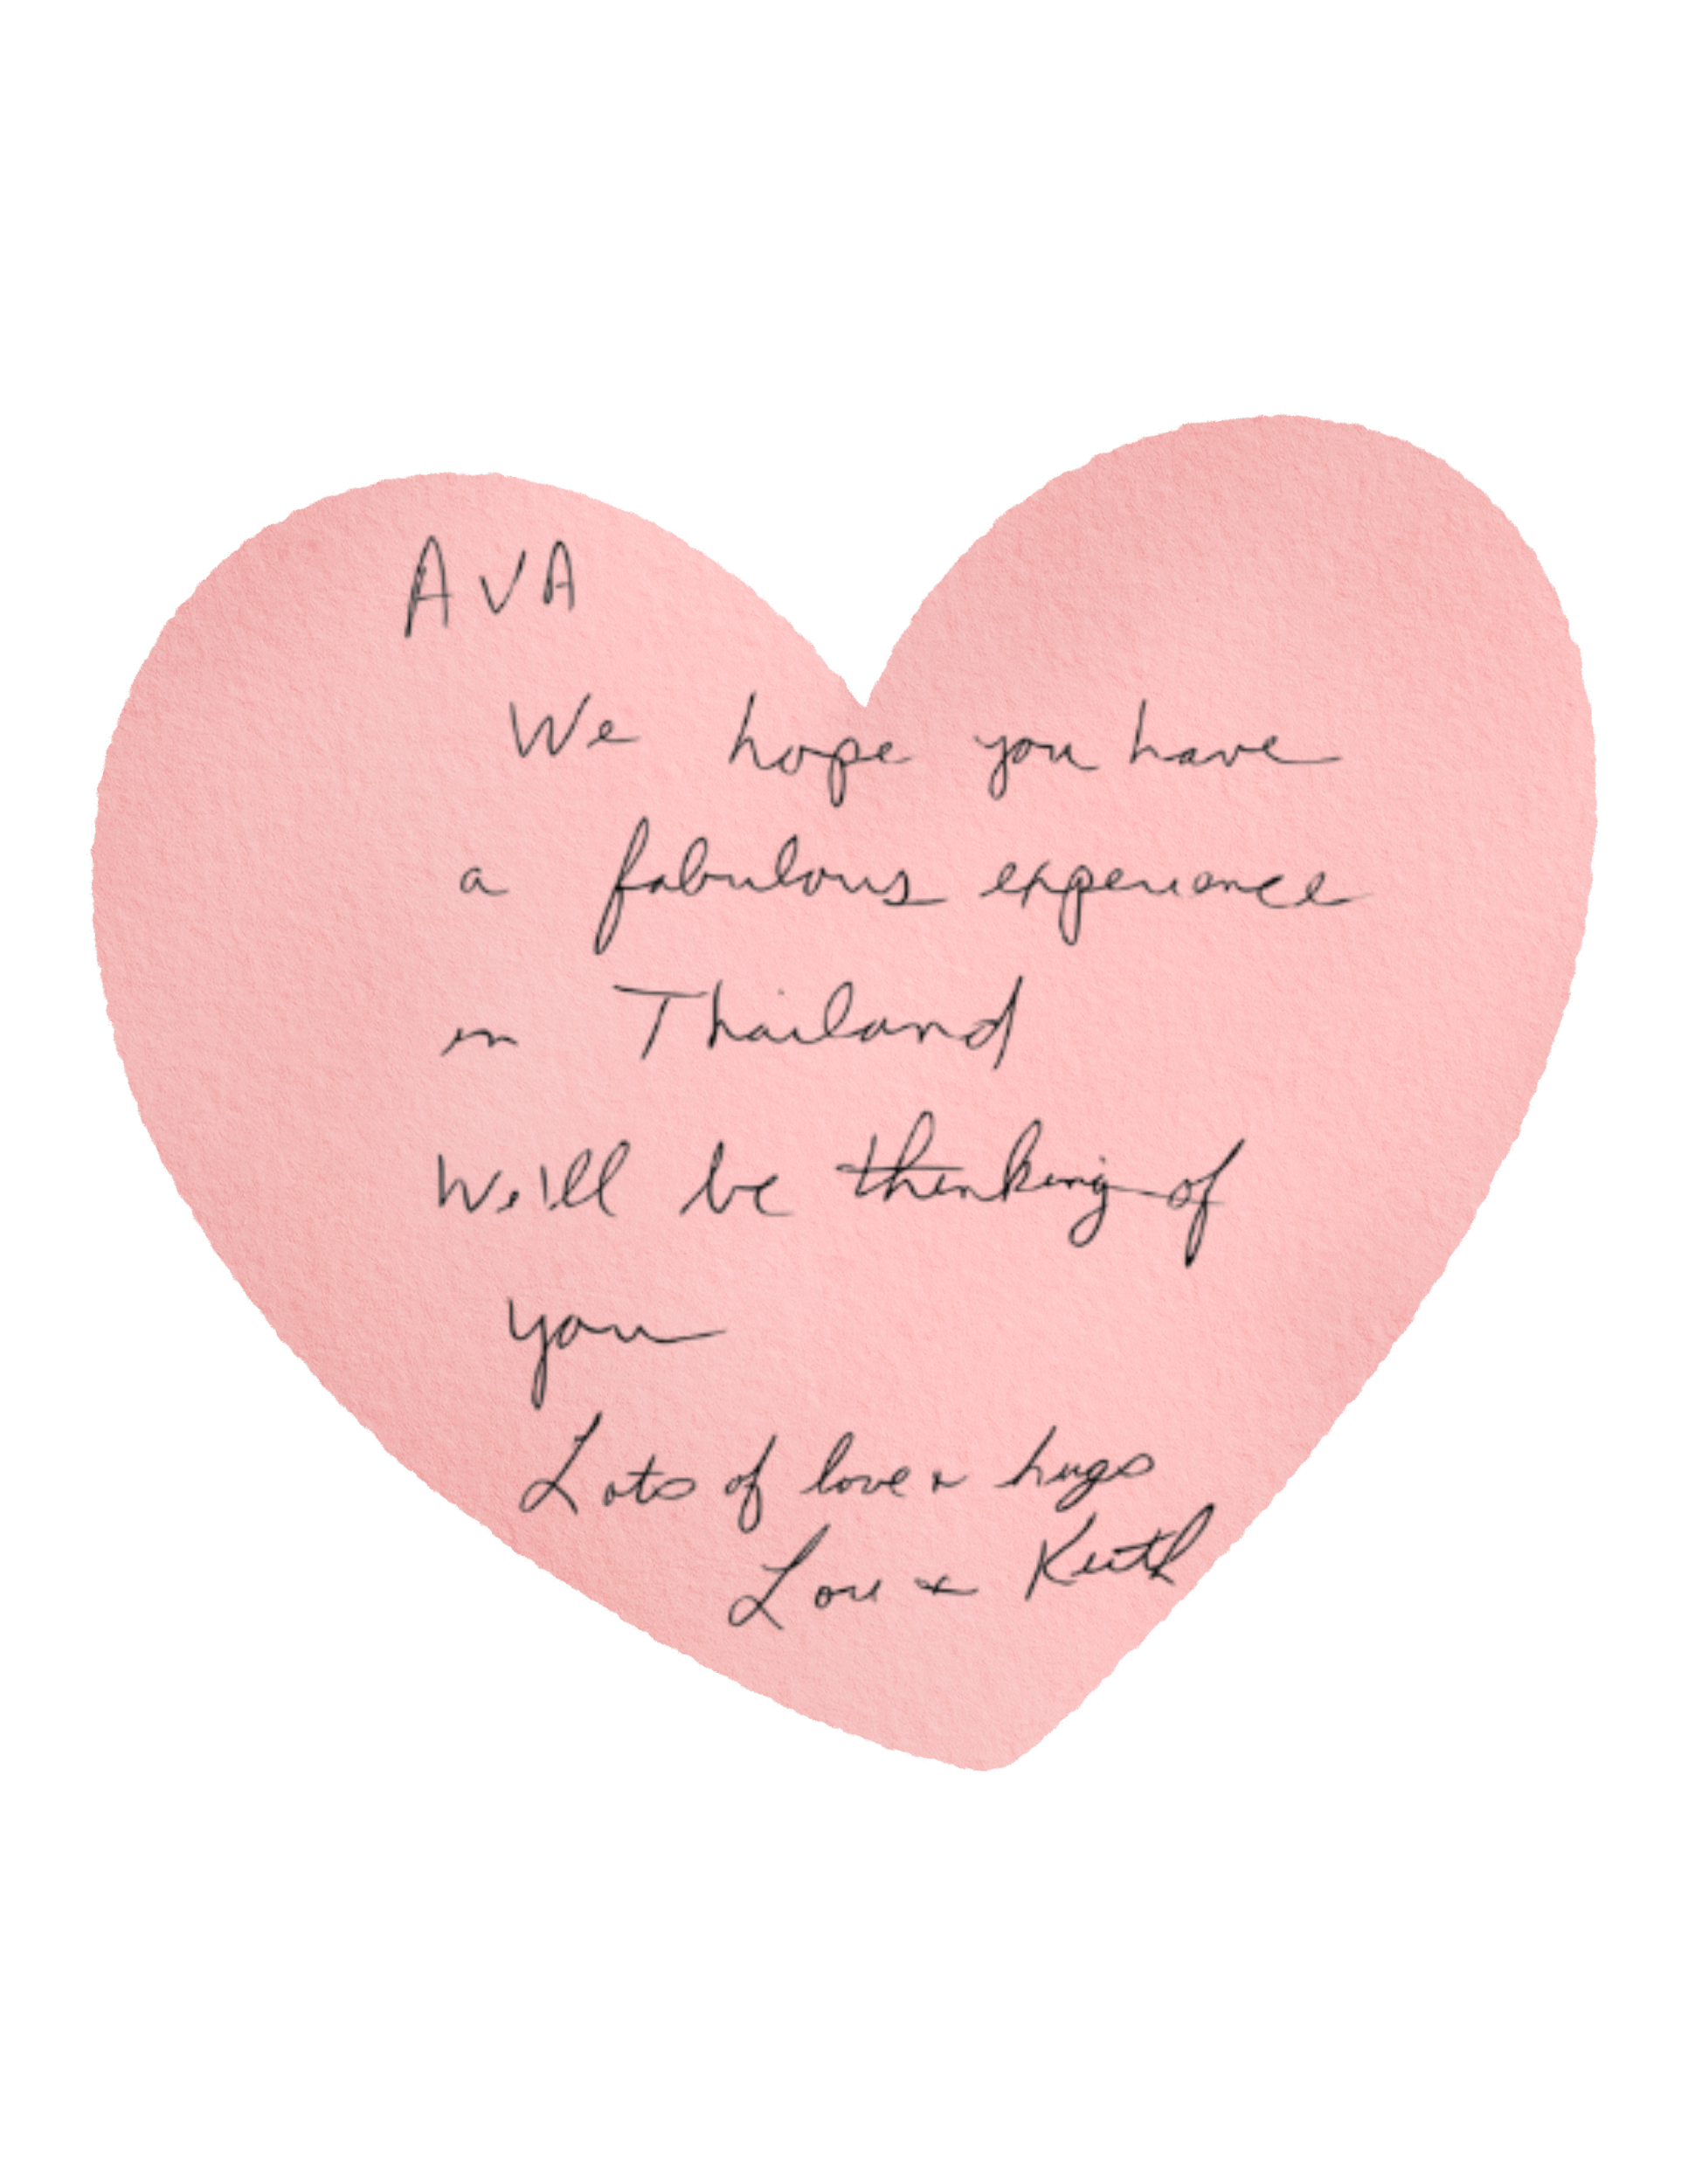 AVA
We hope you have
a fabulous experience
in Thailand
We'll be thinking of
you
Lots of love & hugs
& Keith